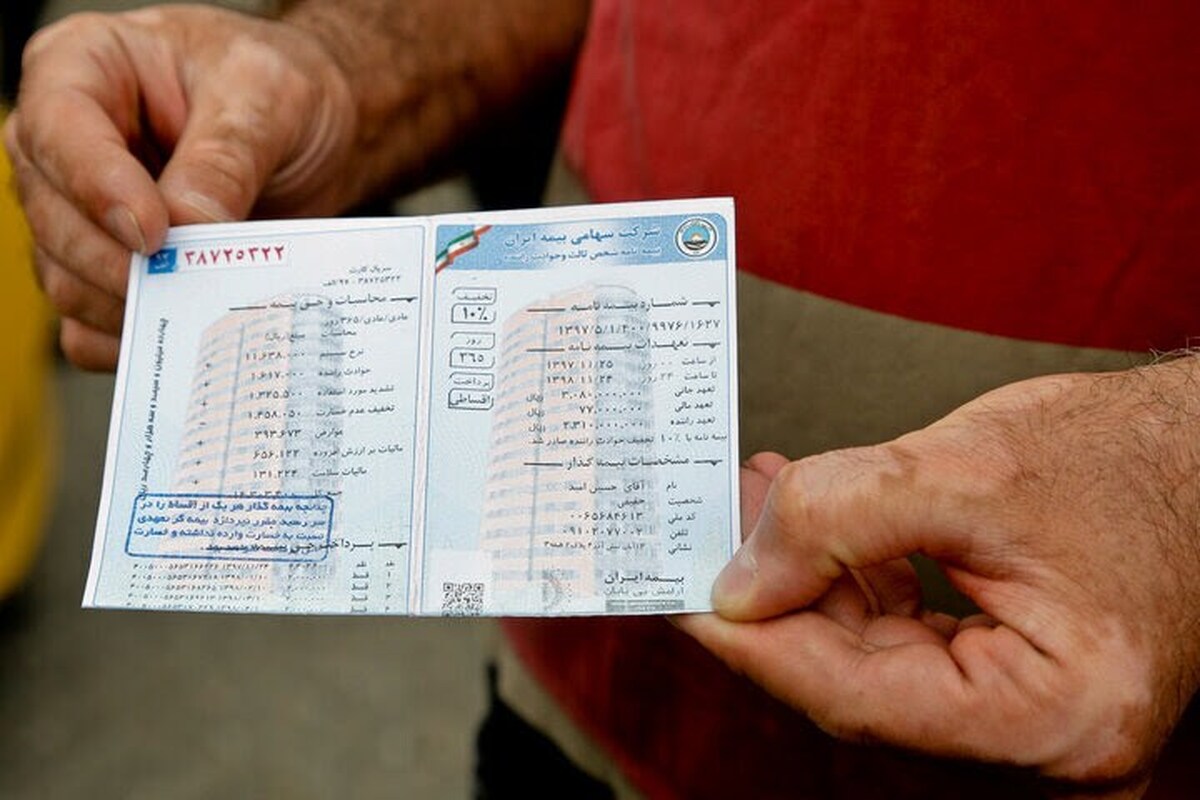 شرکت سهامی بیمه ایران
بیمه نامه شخص ثالث وحوادث راننده
تخفیف
۱۰%
روز
۳۶۵
پرداخت
اقساطی
شماره بیمه نامه
۱۳۹۷/۵/۱/۴۰۰/۹۹۷۶/۱۶۲۷
تعهدات بیمه نامه
از ساعت ۰۰:۰۰ روز ۱۳۹۷/۱۱/۲۵
تا ساعت ۲۴ روز ۱۳۹۸/۱۱/۲۴
تعهد جانی ۳.۰۸۰.۰۰۰.۰۰۰ ریال
تعهد مالی ۷۷.۰۰۰.۰۰۰ ریال
تعهد راننده ۲.۳۱۰.۰۰۰.۰۰۰ ریال
بیمه نامه با ۱۰% تخفیف حوادث راننده صادر شد.
مشخصات بیمه گذار
نام آقای حسین امید
شخصیت حقیقی
کد ملی ۰۰۶۵۶۸۴۶۱۳
تلفن ۰۹۱۰۲۰۷۷۰۰۲
نشانی
بیمه ایران
آرامش بی پایان
۳۸۷۲۵۳۲۲
سریال کارت
۳۸۷۲۵۳۲۲ - ۹۷/الف
محاسبات و حق بیمه
عادی/عادی/۳۶۵ روز
محاسبات مبلغ(ریال)
نرخ سیستم ۱۱.۶۳۸.۰۰۰
حوادث راننده ۱.۶۱۷.۰۰۰
تشدید مورد استفاده ۱.۳۲۵.۵۰۰
تخفیف عدم خسارت ۱.۴۵۸.۰۵۰
عوارض ۳۹۳.۶۷۳
مالیات بر ارزش افزوده ۶۵۶.۱۲۲
مالیات سلامت ۱۳۱.۲۲۴
چنانچه بیمه گذار هر یک از اقساط را در
سر رسید مقرر نپردازد بیمه گر تعهدی
نسبت به خسارت وارده نداشته و خسارت
چهارده میلیون و سیصد و سه هزار و چهارصد ریال